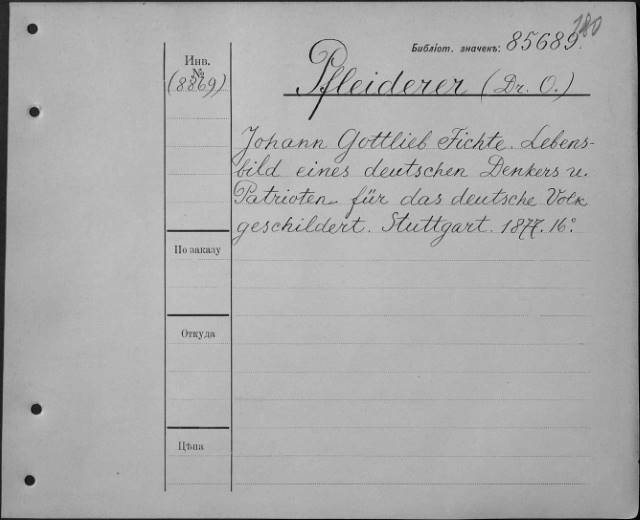 180
Библіот. значекъ: 85689.
Инв.
№
(8869)
Pfleiderer (Dr. O.)
Johann Gottlieb Fichte. Lebens-
bild eines deutschen Denkers u.
Patrioten für das deutsche Volk
geschildert. Stuttgart. 1877. 16°.
По заказу
Откуда
Цѣна